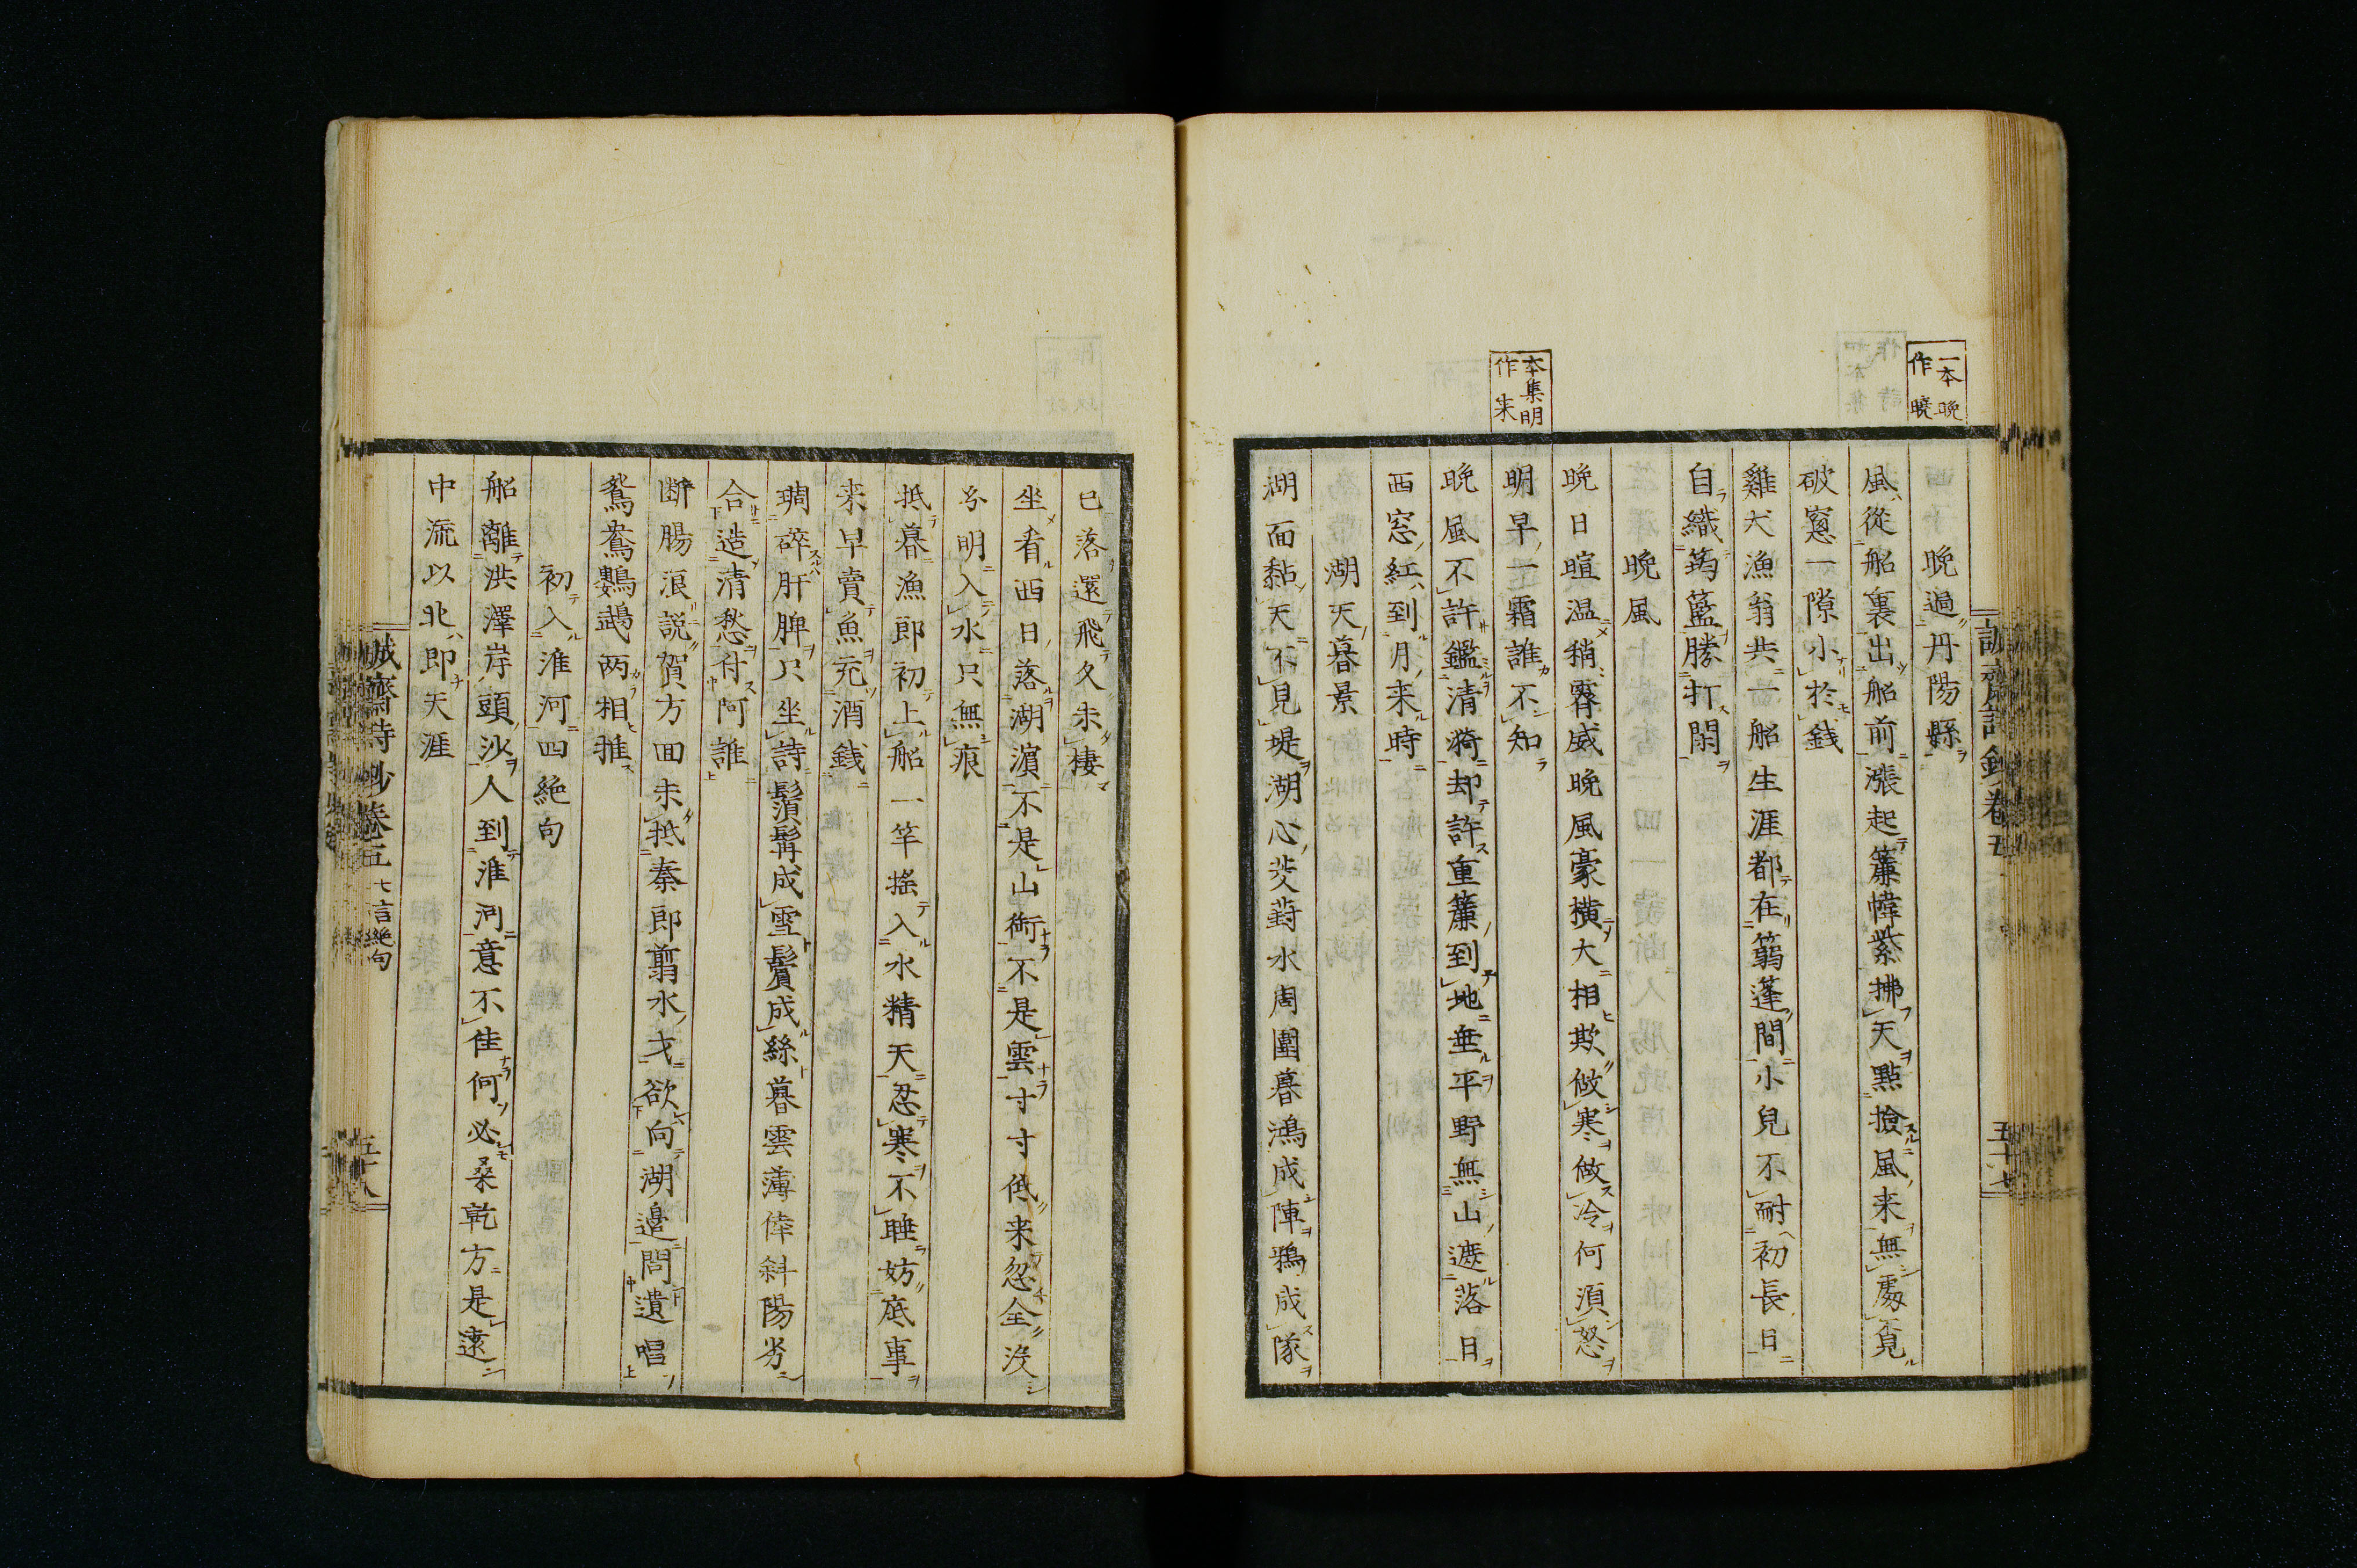 一本晩
作曉
本集明
作朱
誠齋詩鈔卷五
五十七
晩過丹陽縣
風從船裏出船前漲起簾幃紫拂天點撿風来無處覓
破窓一隙小於錢
雞犬漁翁共一船生涯都在篛蓬間小兒不耐初長日
自織筠籃勝打閑
晩風
晩日暄温稍霽威晩風豪横大相欺做寒做冷何須怒
明早一霜誰不知
晩風不許鑑清漪却許重簾到地垂平野無山遮落日
西窓紅到月来時
湖天暮景
湖面黏天不見堤湖心茭葑水周圍暮鴻成陣鴉成隊
已落還飛久未棲
坐看西日落湖濵不是山銜不是雲寸寸低来忽全没
分明入水只無痕
抵暮漁郎初上船一竿揺入水精天忍寒不睡妨底事
来早賣魚充酒錢
琱碎肝脾只坐詩鬚髯成雪鬢成絲暮雲薄倖斜陽劣
合造清愁付阿誰
断腸浪説賀方回未抵秦郎翦水才欲向湖邉問遺唱
鴛鴦鸚鵡两相推
初入淮河四絶句
船離洪澤岸頭沙人到淮河意不佳何必桑乾方是遠
中流以北即天涯
誠齋詩鈔卷五 七言絶句
五十八